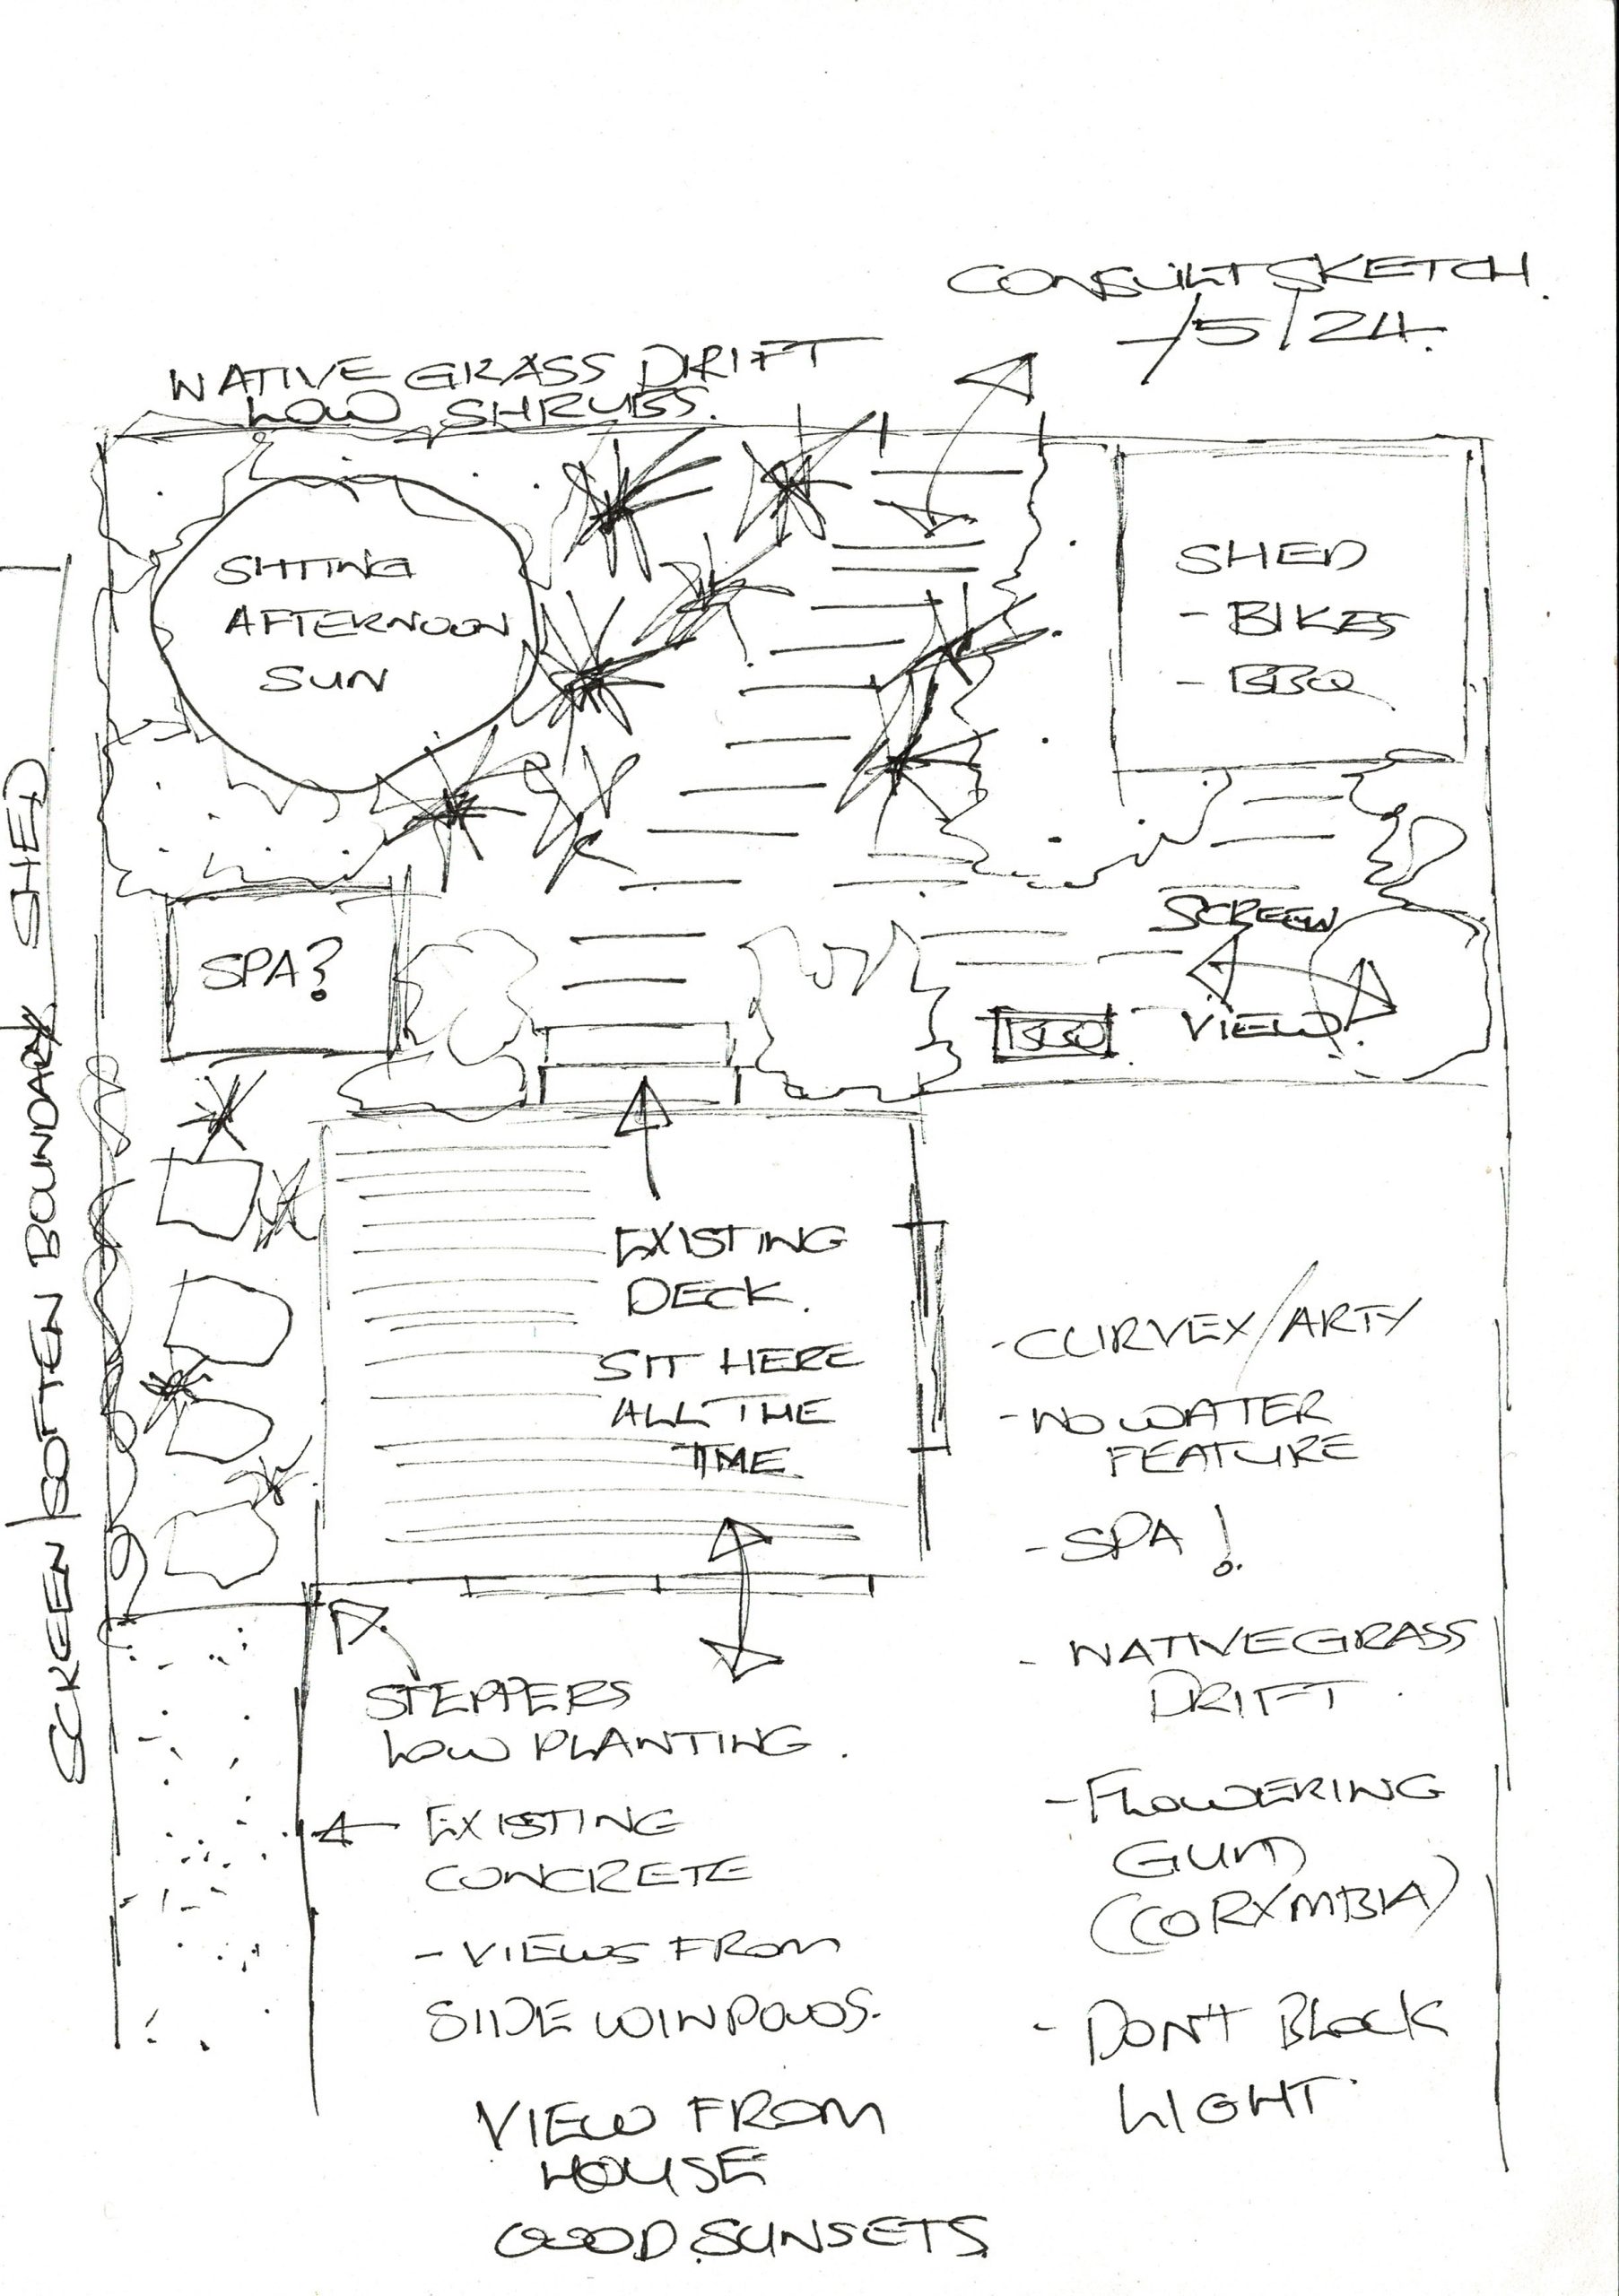 CONSULT SKETCH.
-/5/24.
NATIVE GRASS DRIFT
LOW SHRUBS.
SITTING
AFTERNOON
SUN
SHED
- BIKES
- BBQ
SPA?
SCREEN
VIEW
BBQ
SCREEN/SOFTEN BOUNDARY SHED
EXISTING
DECK.
SIT HERE
ALL THE
TIME.
STEPPERS
LOW PLANTING.
EXISTING
CONCRETE
- VIEWS FROM
SIDE WINDOWS.
VIEW FROM
HOUSE
GOOD SUNSETS
- CURVEY/ARTY
- NO WATER
FEATURE
- SPA!
- NATIVE GRASS
DRIFT.
- FLOWERING
GUM
(CORYMBIA)
- DON'T BLOCK
LIGHT.